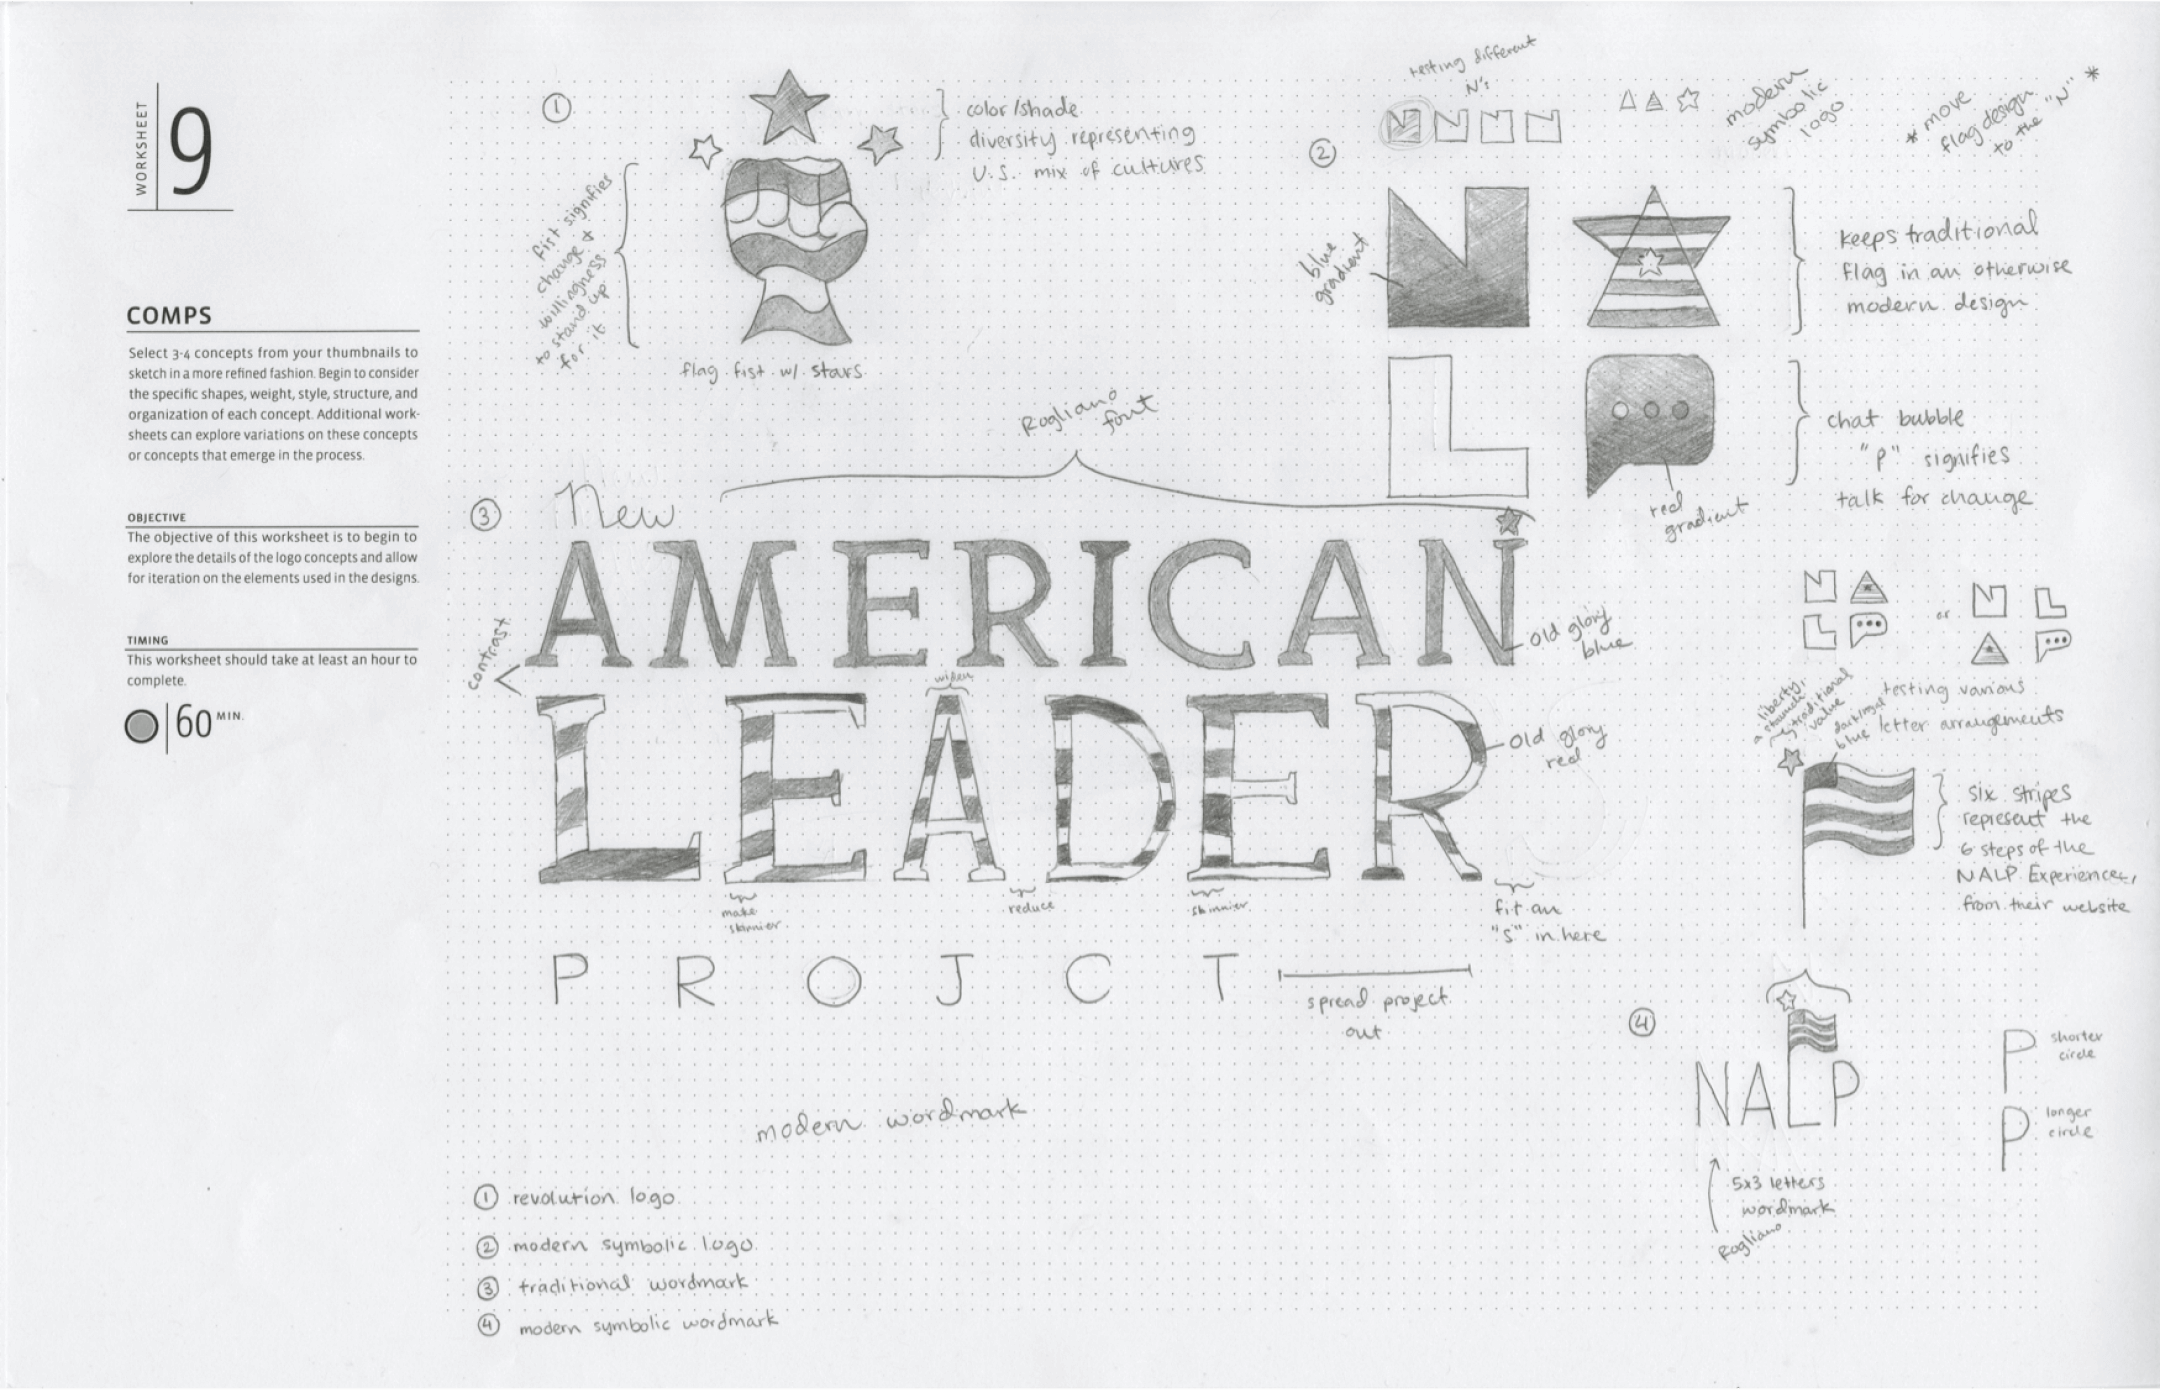 WORKSHEET
9
COMPS
Select 3-4 concepts from your thumbnails to
sketch in a more refined fashion. Begin to consider
the specific shapes, weight, style, structure, and
organization of each concept. Additional work-
sheets can explore variations on these concepts
or concepts that emerge in the process.
OBJECTIVE
The objective of this worksheet is to begin to
explore the details of the logo concepts and allow
for iteration on the elements used in the designs.
TIMING
This worksheet should take at least an hour to
complete.
60 MIN.
1
color/shade
diversity representing
U.S. mix of cultures
fist signifies
change &
willingness
to stand up
for it
flag fist w/ stars
2
testing different
N's
modern
symbolic
logo
* move
flag design
to the "N" *
blue
gradient
N
L
keeps traditional
flag in an otherwise
modern design
chat bubble
"P" signifies
talk for change
red
gradient
N
L
or
N L
testing various
letter arrangements
3
Rogliano
font
New
AMERICAN
old glory
blue
contrast
widen
LEADER
old glory
red
make
skinnier
reduce
skinnier
fit an
"S" in here
P R O J C T
spread project
out
liberty,
a staunch
traditional
value
dark/royal
blue
six stripes
represent the
6 steps of the
NALP Experience,
from their website
4
NALP
5x3 letters
wordmark
Rogliano
P shorter
circle
P longer
circle
modern wordmark
1 revolution logo
2 modern symbolic logo
3 traditional wordmark
4 modern symbolic wordmark